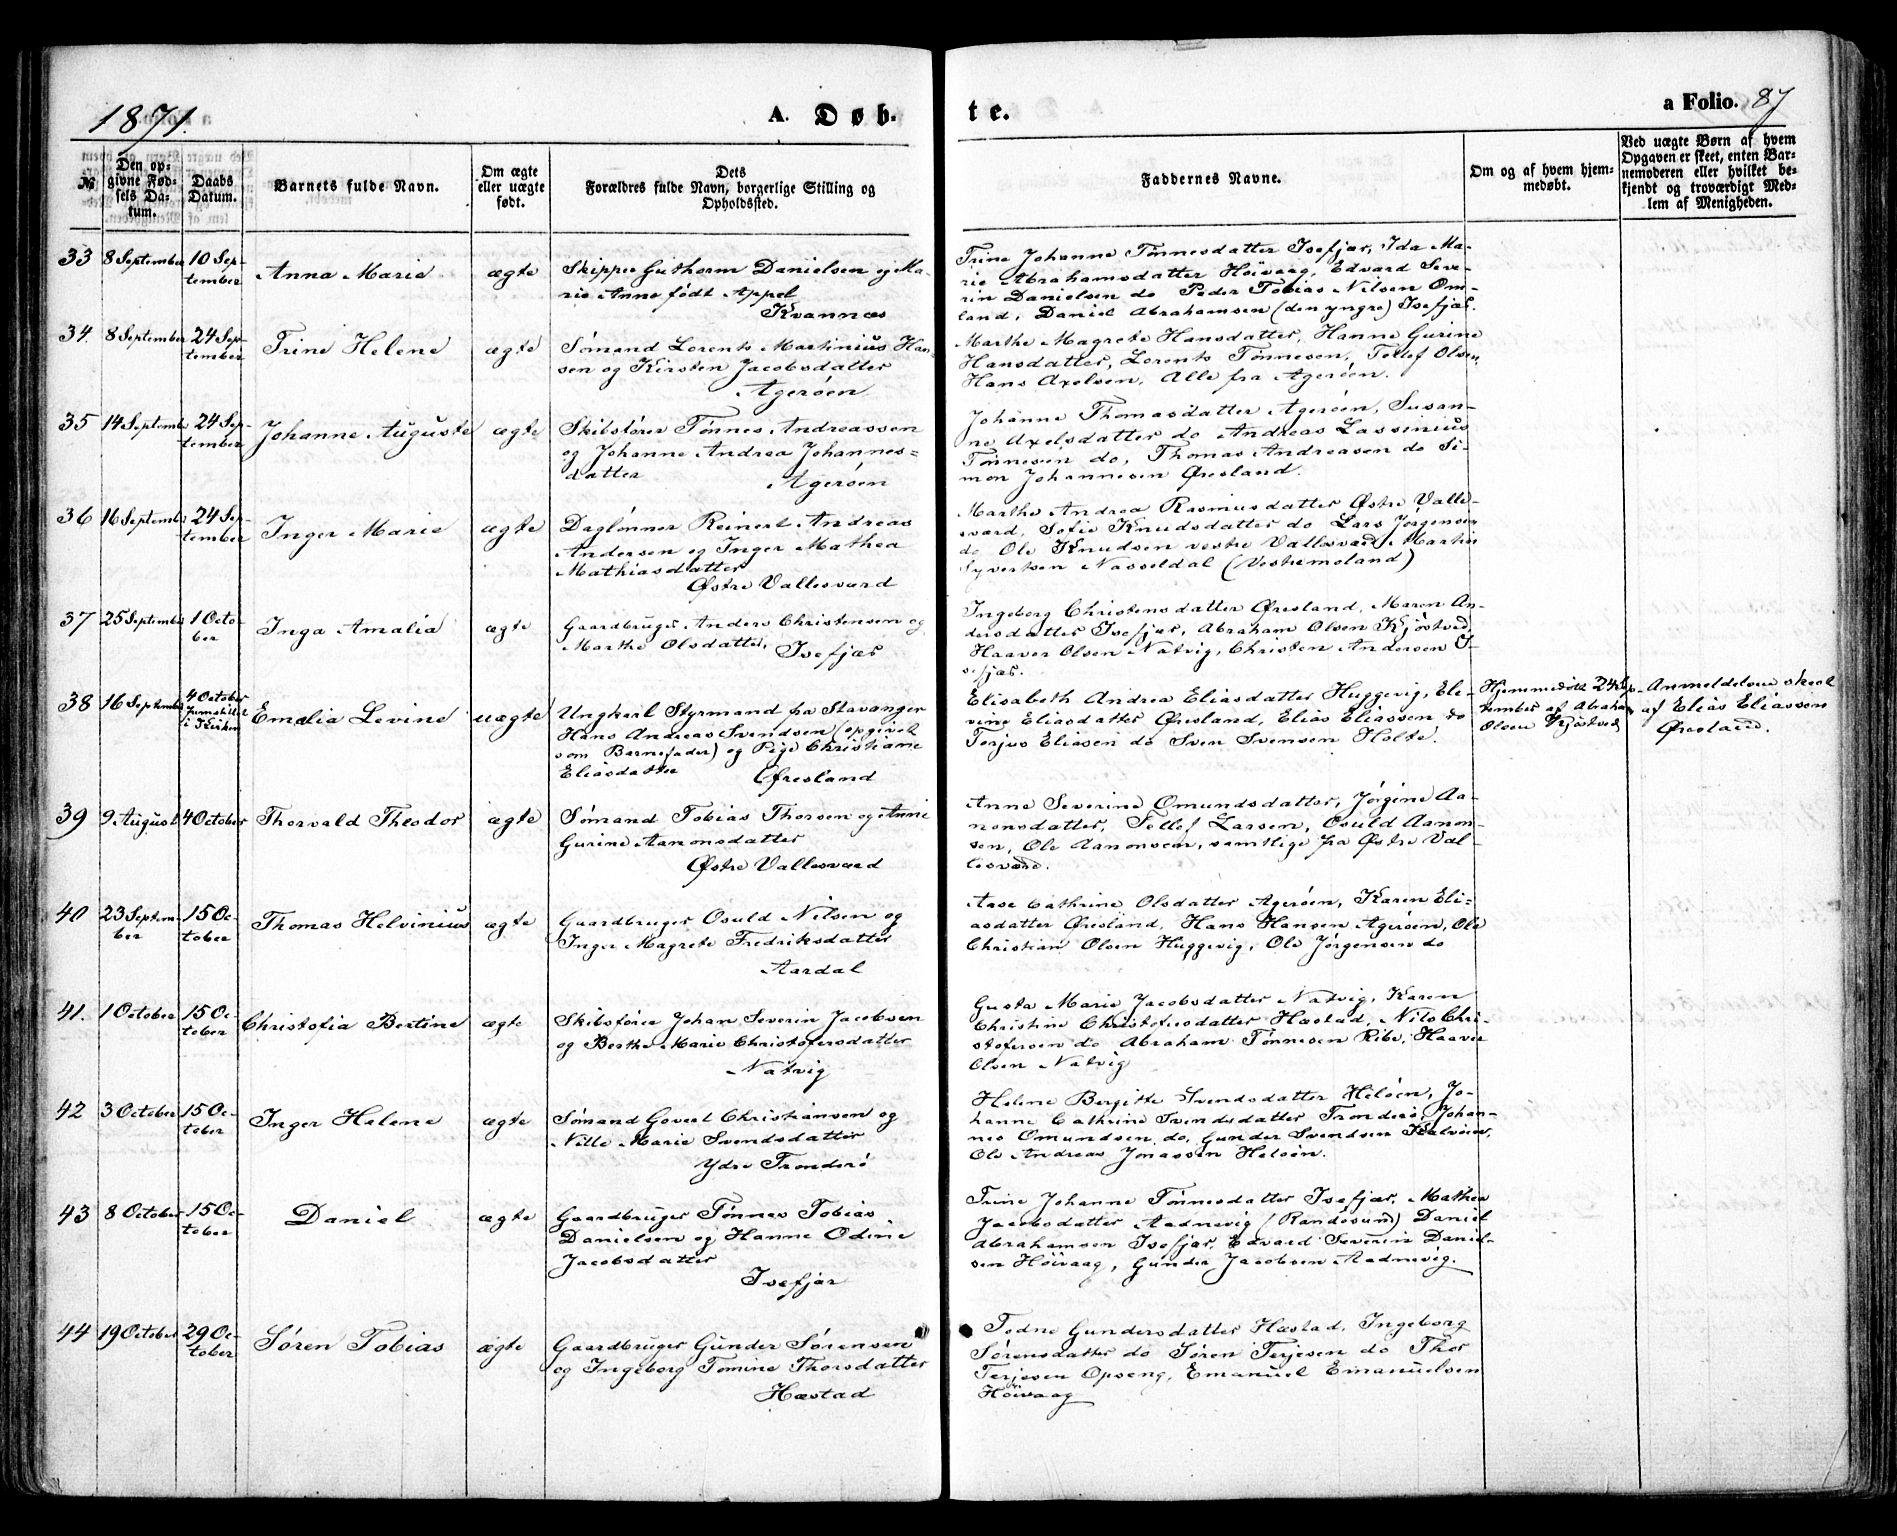 1871.
A. Døb-
te.
a Folio. 87
№
Den op-
givne Fød-
sels Da-
tum.
Daabs
Datum.
Barnets fulde Navn.
Om ægte
eller uægte
født.
Dets
Forældres fulde Navn, borgerlige Stilling og
Opholdssted.
Faddernes Navne.
Om og af hvem hjem-
medøbt.
Ved uægte Børn af hvem
Opgaven er skeet, enten Bar-
nemoderen eller hvilket be-
kjendt og troværdigt Med-
lem af Menigheden.
33
8 September
10 Sep-
tember
Anna Marie
ægte
Skipper Guthorm Danielsen og Ma-
rie Anne født Appel
Kvannæs
Trine Johanne Tønnesdatter Isefjær, Ida Ma-
rie Abrahamsdatter Höivaag, Edvard Seve-
rin Danielsen do Peder Tobias Nilsen Om-
land, Daniel Abrahamsen (den yngre) Isefjær.
34.
8 September
24 Sep-
tember
Trine Helene
ægte
Sømand Lorents Martinius Han-
sen og Kirsten Jacobsdatter
Agerøen
Marthe Magrete Hansdatter, Hanne Gurine
Hansdatter, Lorents Tønnesen, Tellef Olsen,
Hans Axelsen, Alle fra Agerøen.
35
14 Septemb
24 Sep-
tember
Johanne Auguste
ægte
Skibsfører Tønnes Andreassen
og Johanne Andrea Johannes=
datter
Agerøen
Johanne Thomasdatter Agerøen, Susan-
ne Axelsdatter do Andreas Lassenius
Tønnesen do, Thomas Andreasen do Si-
mon Johannesen Øresland.
36
16 Septemb
24 Sep-
tember
Inger Marie
ægte
Daglønner Reinert Andreas
Andersen og Inger Mathea
Mathiasdatter
Østre Vallesværd
Marthe Andrea Rasmusdatter Østre Valle-
sværd, Sofie Knudsdatter do Lars Jørgensen
do, Ole Knudsen vestre Vallesværd, Martin
Syvertsen Nasseldal (Vestremoland)
37
25 September
1 Octo-
ber
Inga Amalia
ægte
Gaardbruger Anders Christensen og
Marthe Olsdatter,
Isefjær
Ingeborg Christensdatter Øresland, Maren An-
dersdatter Isefjær, Abraham Olsen Kjøstved,
Haaver Olsen Natvig, Christen Andersen I-
sefjær.
38
16 Septemb
4 October
fremstillet
i Kirken
Emalia Levine
uægte
Ungkarl Styrmand fra Stavanger
Hans Andreas Svendsen (opgivet
som Barnefader) og Pige Christiane
Eliasdatter
Øresland
Elisabeth Andrea Eliasdatter Huggevig, Ele-
vine Eliasdatter Øresland, Elias Eliassen do
Terjus Eliasen do Sven Svensen Holte.
Hjemmedøbt 24 Sep-
tember af Abraham
Olsen Kjøstved
Anmeldelsen skeet
af Elias Eliassen
Øresland.
39
9 August
4 October
Thorvald Theodor
ægte
Sømand Tobias Thorsen og Anne
Gurine Aanonsdatter
Østre Vallesværd
Anne Severine Omundsdatter, Jørgine Aa-
nonsdatter, Tellef Larsen, Osuld Aanon-
sen, Ole Aanonsen, samtlige fra Østre Val-
lesværd.
40
23 Septem-
ber
15 Oc-
tober
Thomas Helvinius
ægte
Gaardbruger Osuld Nilsen og
Inger Magrete Fredriksdatter
Aardal
Aase Cathrine Olsdatter Agerøen, Karen Eli-
asdatter Øresland, Hans Hansen Agerøen, Ole
Christian Olsen Huggevig, Ole Jørgensen do
41.
1 October
15 Oc-
tober
Christofia Bertine
ægte
Skibsfører Johan Severin Jacobsen
og Berthe Marie Christofersdatter
Natvig
Gusta Marie Jacobsdatter Natvig, Karen
Christine Christofersdatter Hæstad, Nils Chri-
stofersen do Abraham Tønnesen Ribe, Haaver
Olsen Natvig
42
3 October
15 Oc-
tober
Inger Helene
ægte
Sømand Govert Christiansen og
Nille Marie Svendsdatter
Ydre Tronderö
Helene Birgitte Svendsdatter Helöen, Jo-
hanne Cathrine Svendsdatter Tronderö, Johan-
nes Omundsen do, Gunder Svendsen Kalvöen,
Ole Andreas Jonassen Helöen.
43
8 October
15 Oc-
tober
Daniel
ægte
Gaardbruger Tønnes Tobias
Danielsen og Hanne Odine
Jacobsdatter
Isefjær
Trine Johanne Tønnesdatter Isefjær, Mathea
Jacobsdatter Aadnevig (Randösund) Daniel
Abrahamsen Isefjær, Edvard Severin Daniel-
sen Höivaag, Gunder Jacobsen Aadnevig.
44
19 October
29 Oc-
tober
Søren Tobias
ægte
Gaardbruger Gunder Sørensen
og Ingeborg Tomine Thorsdatter
Hæstad
Todne Gundersdatter Hæstad, Ingeborg
Sørensdatter do Søren Terjesen do Thor
Terjesen Opseng, Emanuel Emanuelsen
Höivaag